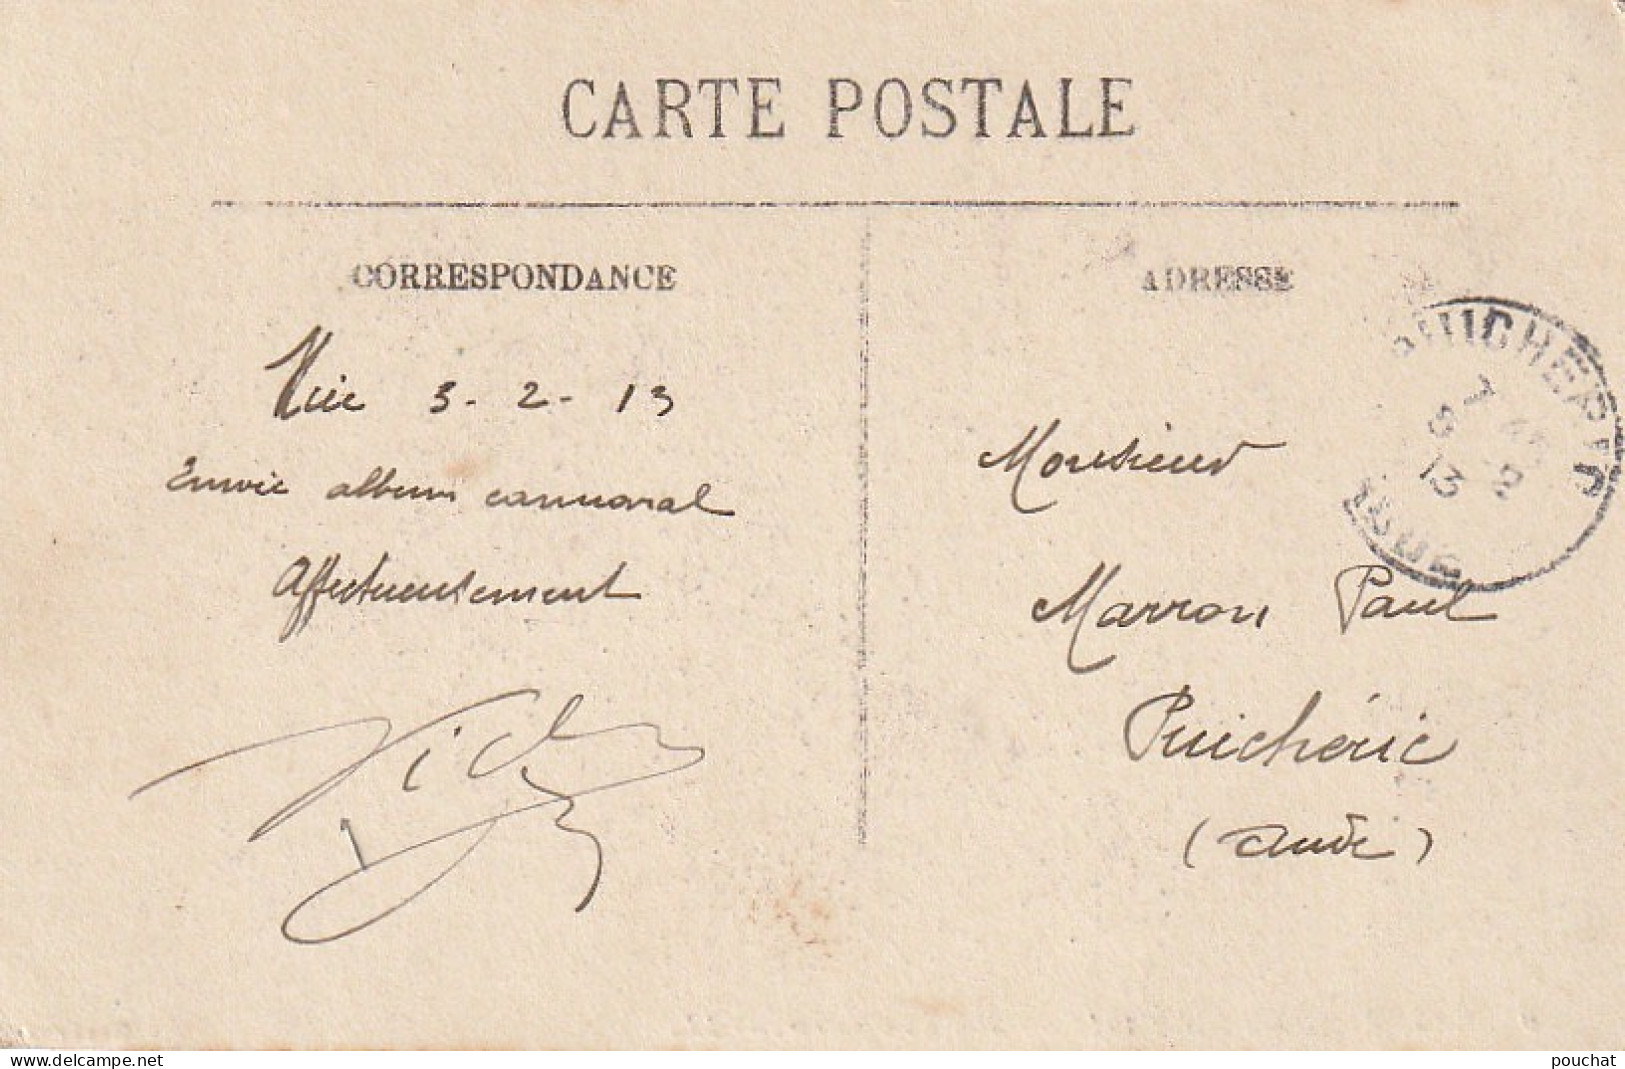 CARTE POSTALE
CORRESPONDANCE
Nice 3-2-13
Envoie album carnaval
Affectueusement
ADRESSE
PUICHERIC
7
8 2
13
AUDE
Monsieur
Marron Paul
Puichéric
(Aude)
www.delcampe.net
pouchat